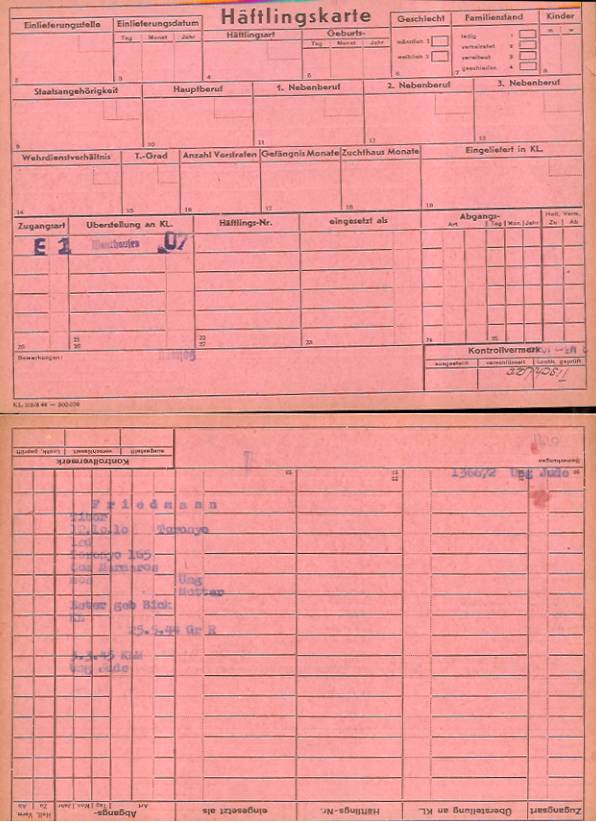 Häftlingskarte
Einlieferungsstelle
Einlieferungsdatum
Tag Monat Jahr
Häftlingsart
Geburts-
Tag Monat Jahr
Geschlecht
männlich
weiblich
Familienstand
ledig 1
verheiratet 2
verwitwet 3
geschieden 4
Kinder
m w
2 3 4 5 6 7 8
Staatsangehörigkeit Hauptberuf 1. Nebenberuf 2. Nebenberuf 3. Nebenberuf
9 10 11 12 13
Wehrdienstverhältnis T.-Grad Anzahl Vorstrafen Gefängnis Monate Zuchthaus Monate Eingeliefert in KL.
14 15 16 17 18 19
Zugangsart Überstellung an KL. Häftlings-Nr. eingesetzt als Abgangs-
Art Tag Mon. Jahr
Haft. Verm.
Zu Ab
E 1 07
20 21 22 23 24 25
Bemerkungen:
Kontrollvermerk
ausgestellt verschlüsselt Lochk. geprüft
Lochk. geprüft verschlüsselt ausgestellt
Kontrollvermerk
Bemerkungen
136672 Ung Jude
Friedmann
Tibor
Toronyo
Toronyo 165
Ung
Mutter
Ester geb Bick
KL
25.5.44 Gr R
3.3.45 KLM
Ung Jude
Haft. Verm.
Ab Zu
Jahr Mon. Tag Art
Abgangs- eingesetzt als Häftlings-Nr. Überstellung an KL. Zugangsart